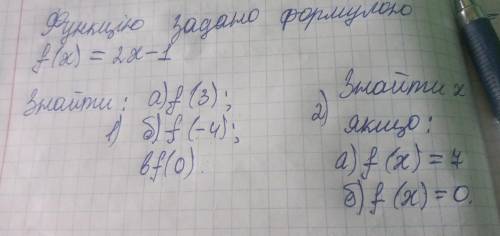 Функцію задано формулою
f(x) = 2x-1
Знайти:
1) а) f(3);
б) f(-4);
в f(0).
2) Знайти x
якщо:
а) f(x) = 7
б) f(x) = 0.